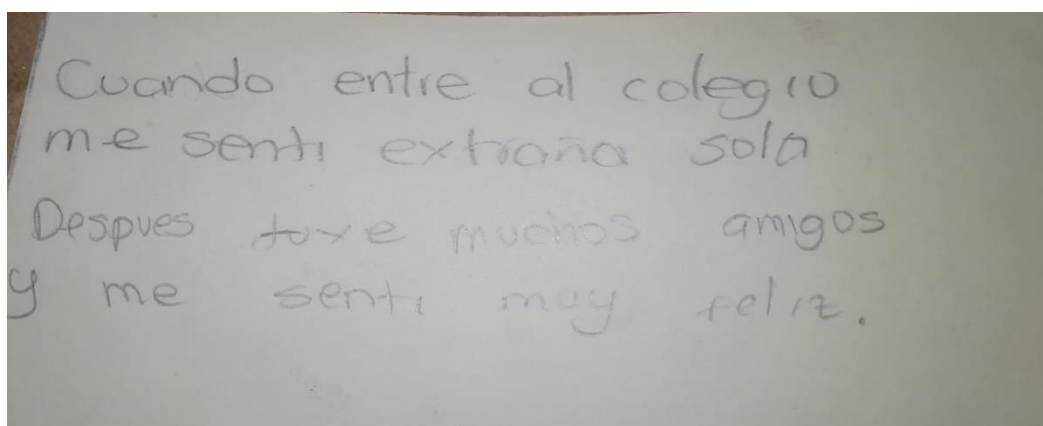 Cuando entre al colegio
me senti extraña sola
Despues tuve muchos amigos
y me senti muy feliz.